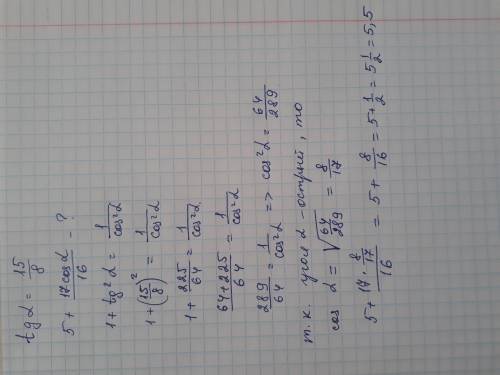 tg α = 15/8
5 + 17 cos α/16 - ?
1 + tg² α = 1/cos² α
1 + (15/8)² = 1/cos² α
1 + 225/64 = 1/cos² α
64+225/64 = 1/cos² α
289/64 = 1/cos² α => cos² α = 64/289
т.к. угол α - острый, то
cos α = √64/289 = 8/17
5 + 17 · 8/17/16 = 5 + 8/16 = 5 + 1/2 = 5 1/2 = 5,5